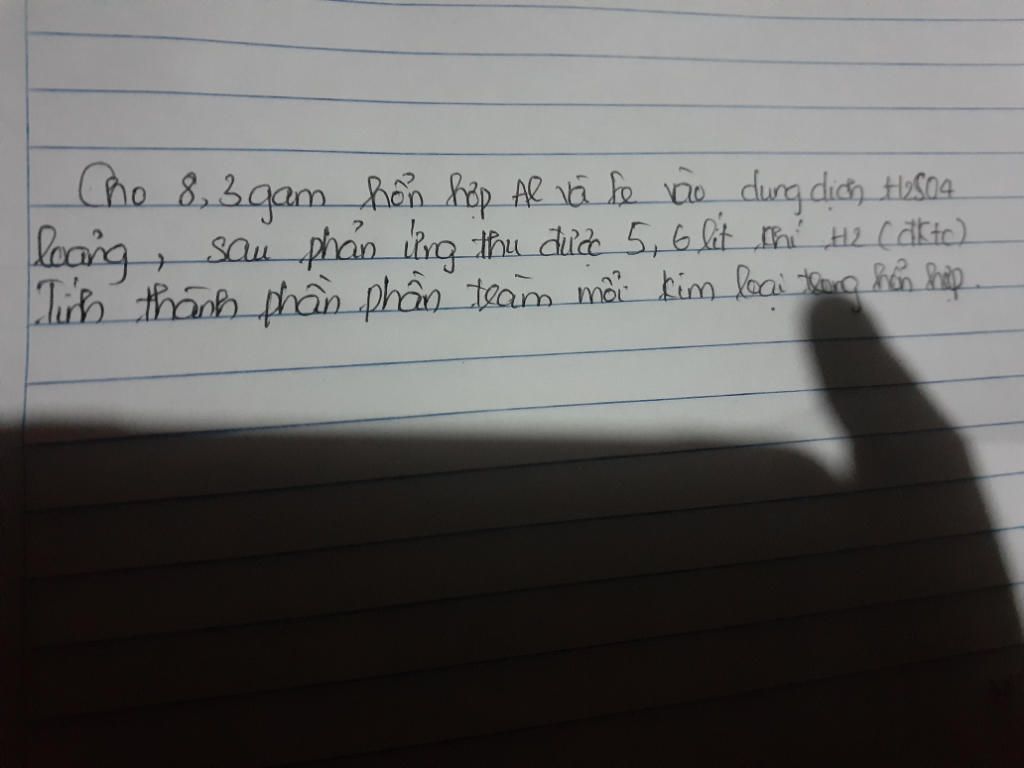 Cho 8,3 gam hỗn hợp Al và Fe vào dung dịch H2SO4
loảng, sau phản ứng thu được 5,6 lít khí H2 (đktc)
Tính thành phần phần trăm mỗi kim loại trong hỗn hợp.